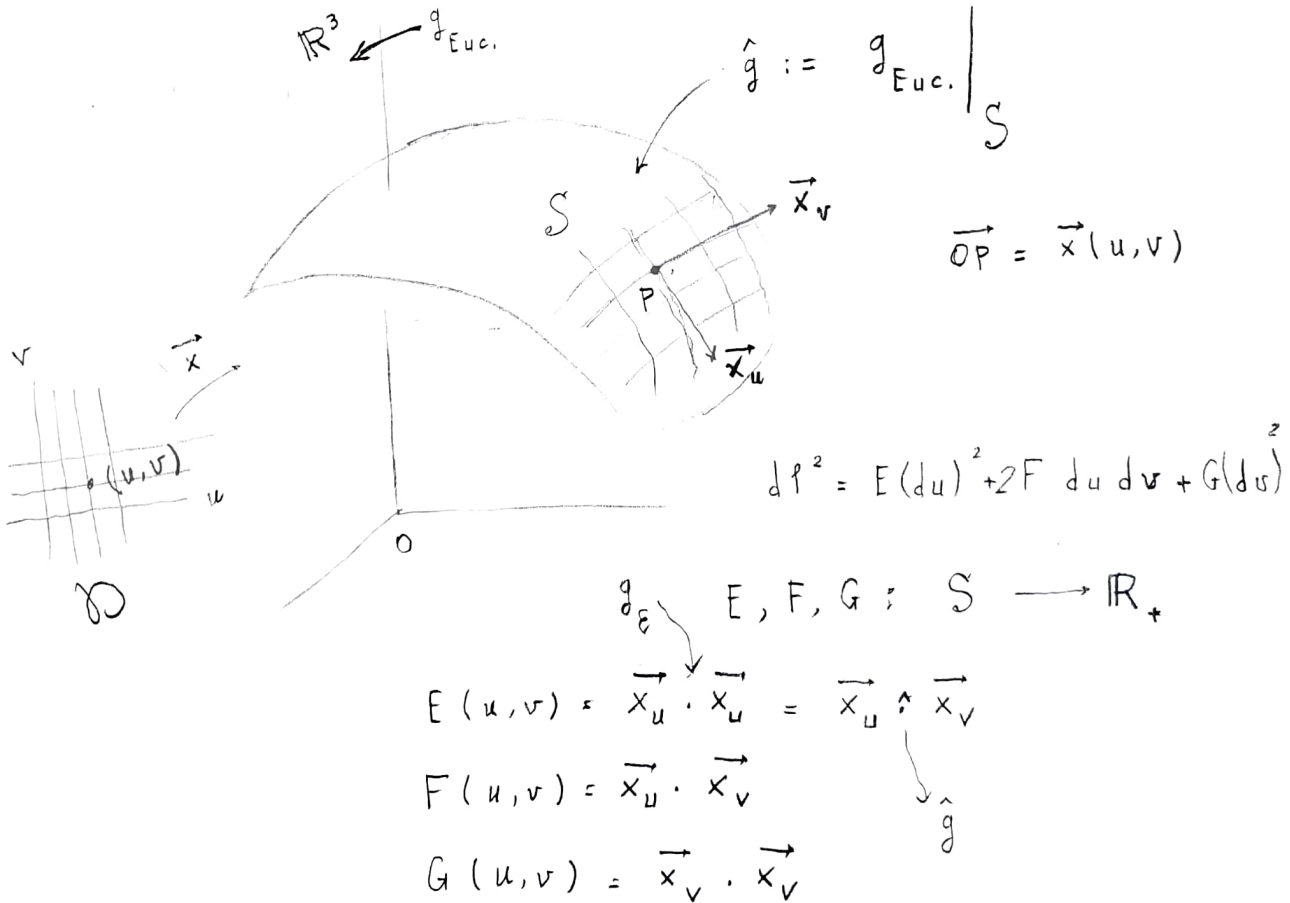 ℝ³ g_Euc.
ĝ := g_Euc.|_S
S
x⃗_v
OP⃗ = x⃗(u,v)
P
x⃗_u
v
x⃗
(u,v)
u
O
dl² = E(du)² + 2F du dv + G(dv)²
D
g_E E, F, G : S ⟶ ℝ₊
E(u,v) = x⃗_u · x⃗_u = x⃗_u ·̂ x⃗_v
F(u,v) = x⃗_u · x⃗_v
ĝ
G(u,v) = x⃗_v · x⃗_v